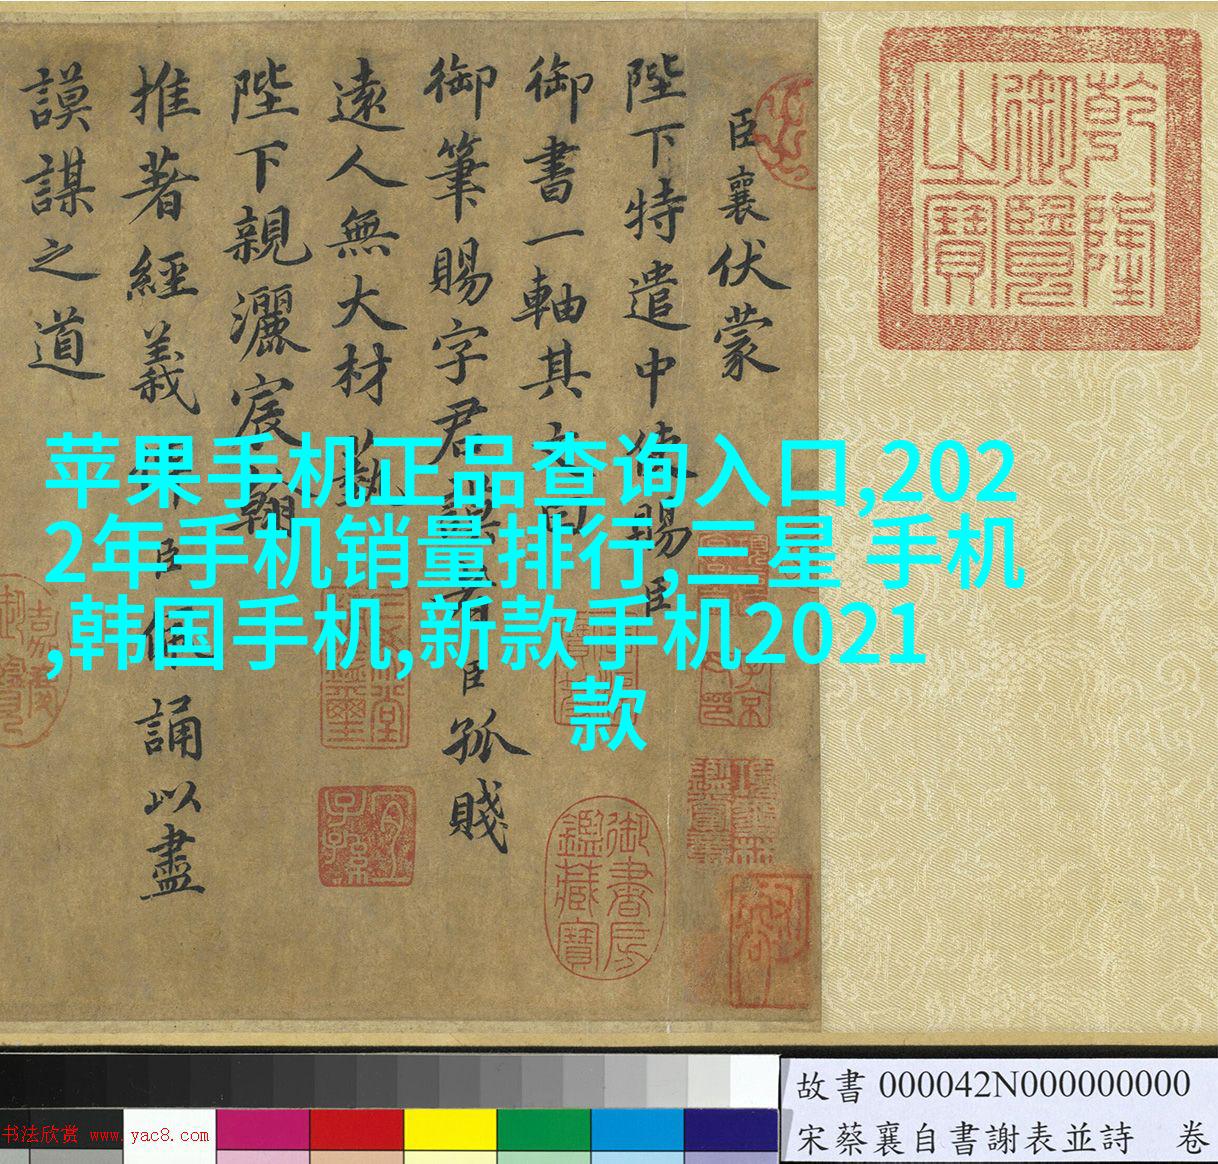 乾隆御覽之寶
臣襄伏蒙
陛下特遣中使賜臣
御書一軸其文曰
御筆賜字君謨者臣孤賤
遠人無大材藝
陛下親灑宸翰
推著經義俾臣佩誦以盡
謨謀之道
苹果手机正品查询入口,202
2年手机销量排行,三星 手机
,韩国手机,新款手机2021
款
御書房鑑藏寶
宜子孫
故書 000042N000000000
宋蔡襄自書謝表並詩 卷
书法欣赏 www.yac8.com